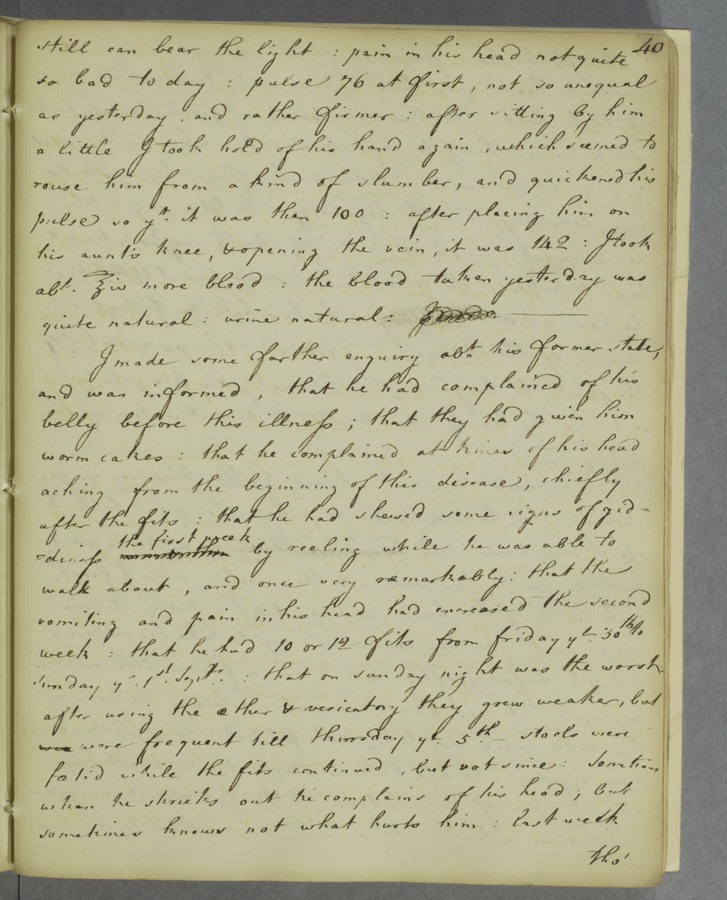 40
still can bear the light : pain in his head not quite
so bad to day : pulse 76 at first, not so unequal
as yesterday, and rather firmer : after sitting by him
a little I took hold of his hand again, which seemed to
rouse him from a kind of slumber, and quickened his
pulse so yt. it was then 100 : after placing him on
his aunt's knee, & opening the vein, it was 142 : I took
abt. ℥iv more blood : the blood taken yesterday was
quite natural : urine natural :
I made some farther enquiry abt. his former state,
and was informed, that he had complained of his
belly before this illness ; that they had given him
worm cakes : that he complained at times of his head
aching from the beginning of this disease, chiefly
after the fits : that he had shewed some signs of gid-
the first week
=diness by reeling while he was able to
walk about, and once very remarkably : that the
vomiting and pain in his head had encreased the second
week : that he had 10 or 12 fits from friday ye. 30th to
Sunday ye. 1st. Septr. : that on sunday night was the worst :
after using the æther & vesicatory they grew weaker, but
were frequent till thursday ye. 5th - stools were
fœtid while the fits continued, but not since : Sometimes
when he shrieks out he complains of his head ; but
sometimes knows not what hurts him : last week
tho'